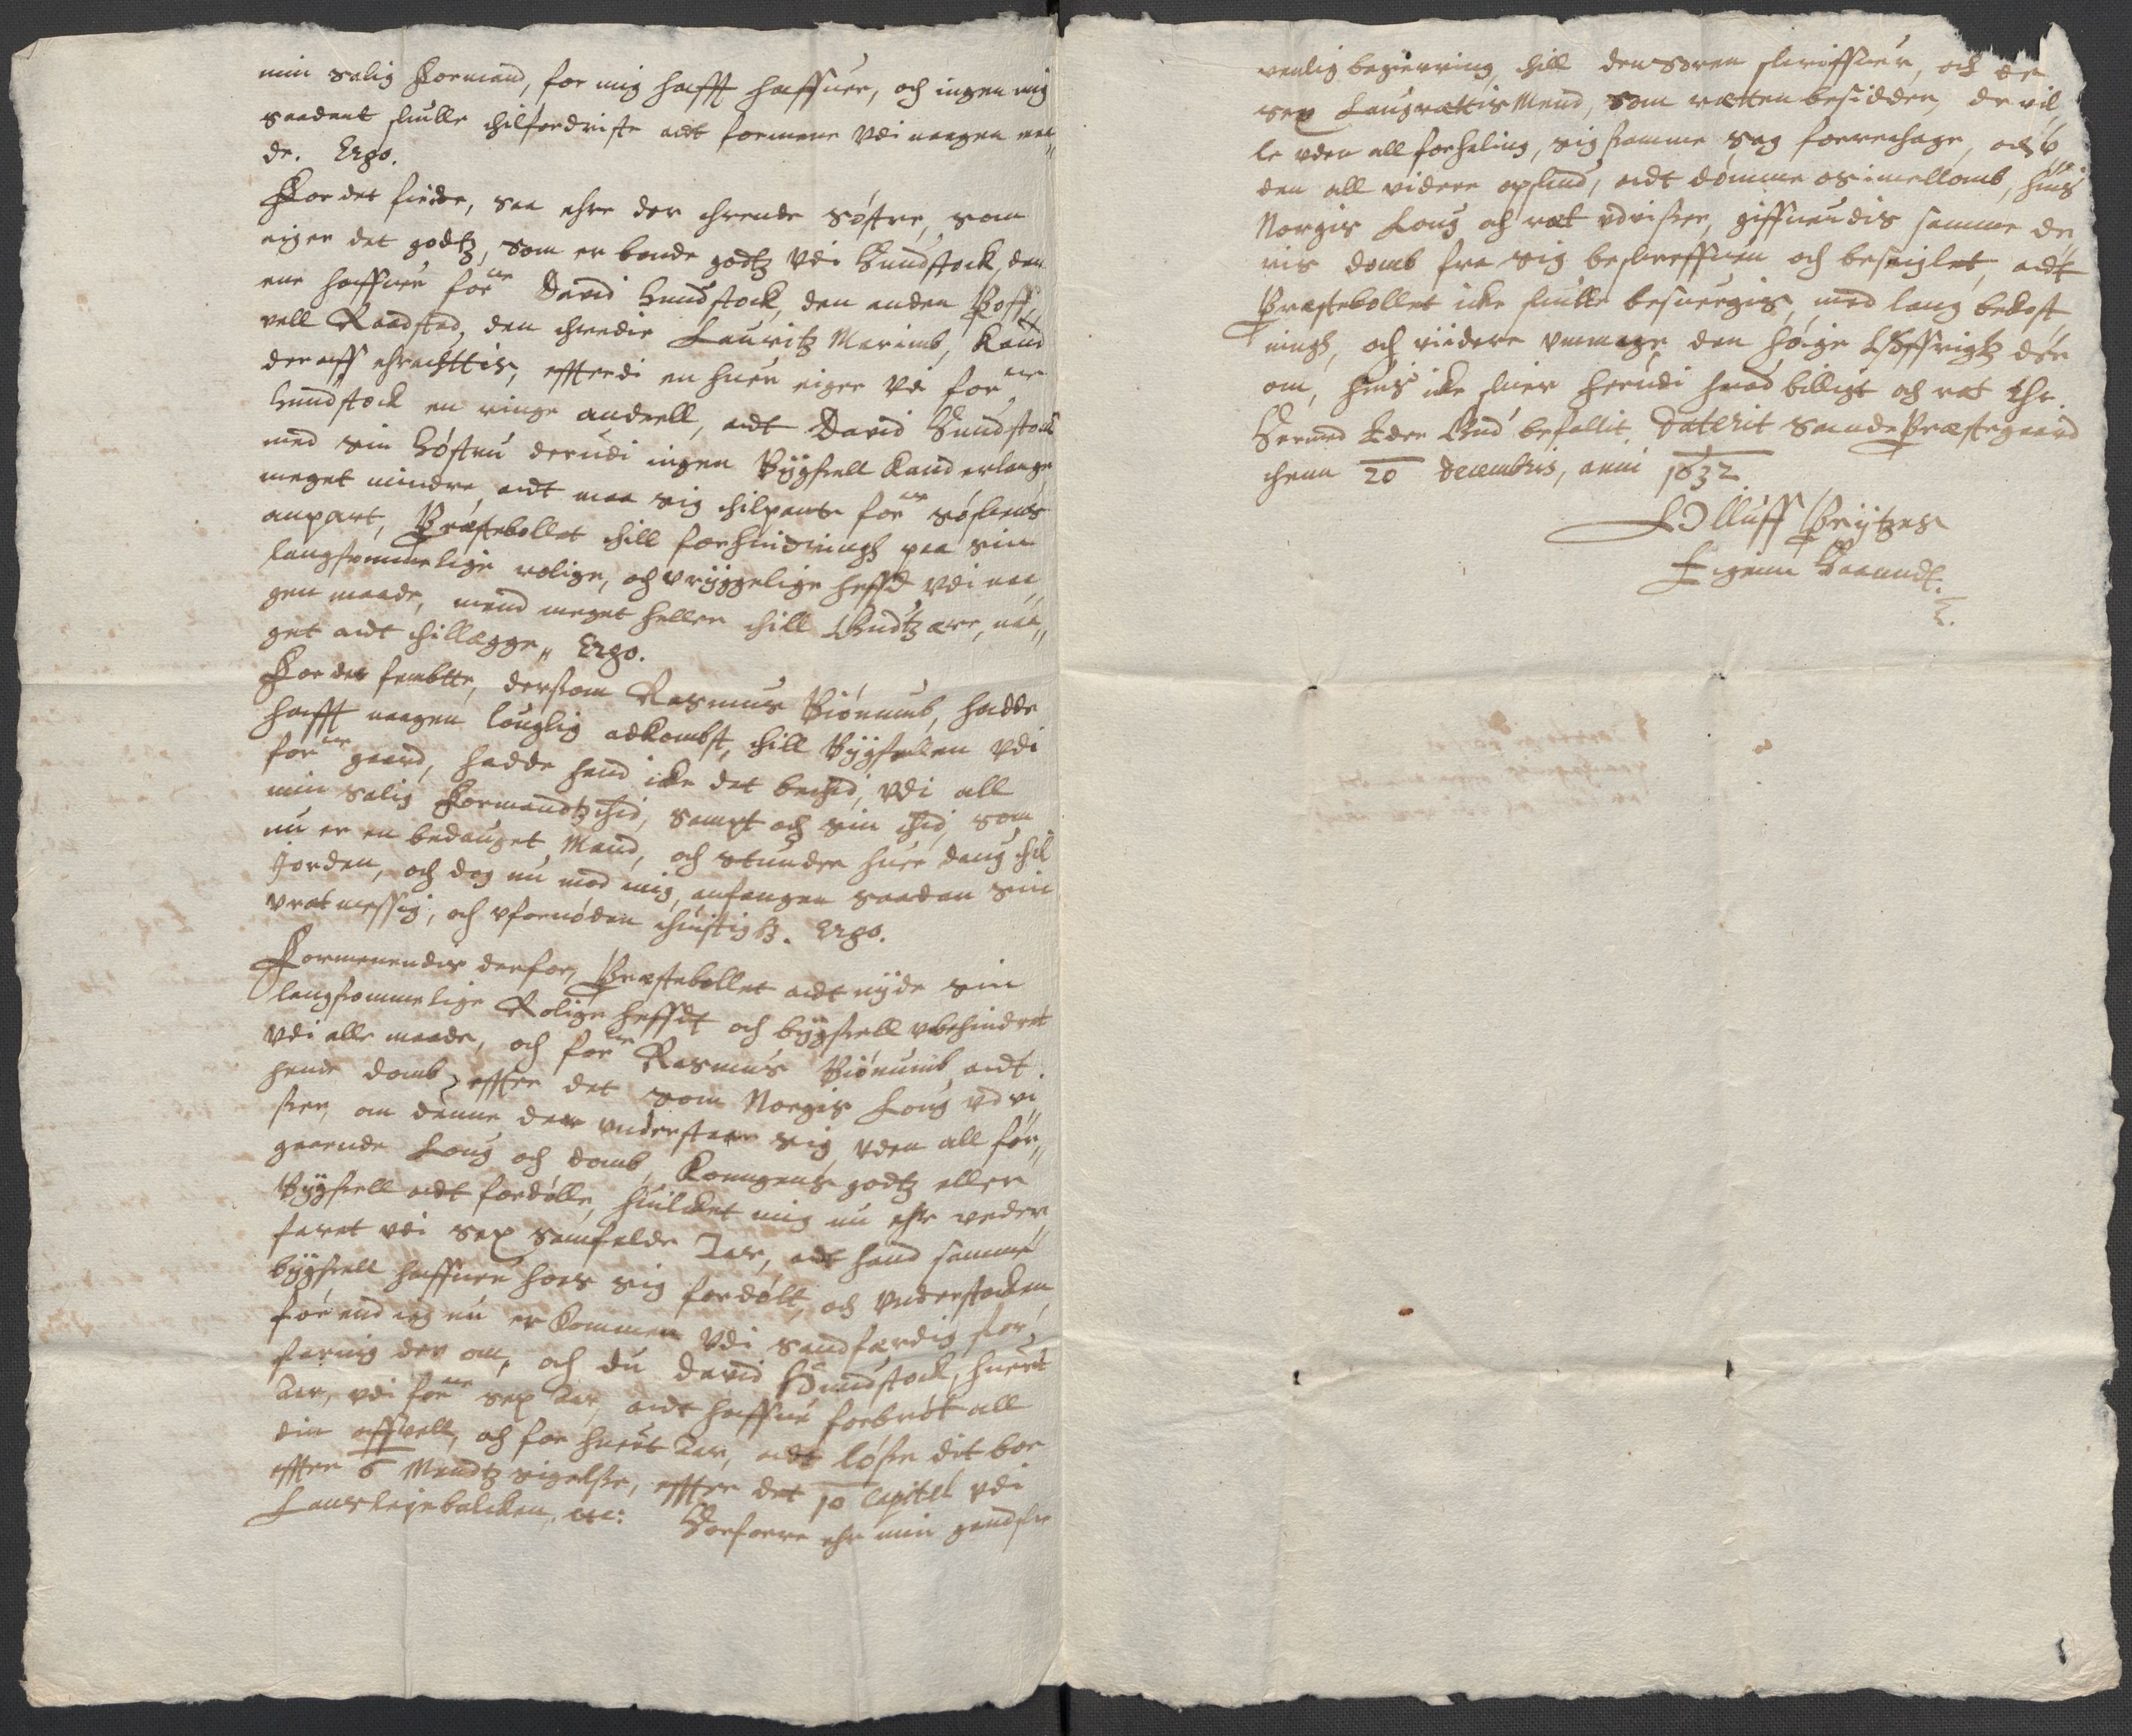 min salig Formand, for mig hafft haffuer, och ingen mig
saadant skulle thilfordriste adt formene Vdi naagen maa„
de. Ergo.
For det fierde, saa ehre der thrende søstre, som
eiger det godtz, som er bonde godtz Vdi Hundstock, den
ene haffuer forne David Hundstock, den anden Poff„
vell Raadstad, den thredie Lauritz Marimb, Kand
der aff ehrachttis, effterdi en huer eiger Vdi forne
Hundstock en ringe andeell, adt David Hundstock
med sin Høstru derudi ingen Bygsell kand erlange
meget mindre, adt maa sig thilpante forne søskens
anpart, Præstebollet thill forhindringh paa sin
langsommelige rolige, och vryggelige heffd Vdi naa„
gen maade, mend meget heller thill Gudtz ære, naa„
get adt thillegge„ Ergo.
For det fembtte, dersom Rasmus Biønnum, hadde
hafft naagen louglig adkombst, thill Bygselen Vdi
forne gaard, hadde hand icke det bethid, Vdi all
min salig Formandtz thid, sampt och sin thid, som
nu er en bedauget Mand, och stunder huer daug thil
Jorden, och dog nu mod mig, anfangen saadan sin
vrætmessig, och vfornøden thuistigh. Ergo.
Formenendis derfor, Præstebollet adt nyde sin
langsommelige Rolige heffdt och bygsell vbehindret
Vdi alle maade, och forne Rasmus Biønnum adt
hende domb effter det som Norgis Loug vdvi„
ser, om denne der vnderstaar sig vden all for„
gaaende Loug och domb, Konngens godtz eller
Bygsell adt fordølle, huilcket mig nu ehr veder„
faret vdi sex samfelde Aar, adt hand samme
bygsell haffuer hoes sig fordølt, och vnderstocken
før end ieg nu er kommen Vdi sandferdig for„
faring der om, och du David Hundstock, huert
Aar, vdi forne sex Aar, adt haffue forbrøt all
din affvell, och for huert Aar, adt løse dit boe
effter 6 Mendtz sigelse, effter det 10 Capitel vdi
Lansleyebalcken, etc: Herforre ehr min gandske
venlig begierring, thill den Soren skriffuer, och de
sex Laugrættis Mend, som rætten besidder, de vil„
le vden all forhaling, sig samme sag forrethage, och v„
den all videre opskud, adt dømme os imellomb, huis
Norgis Loug och ræt vdviser, giffuendis samme de„
ris domb fra sig beskreffuen och besiglet, adt
Præstebollet icke skulle besuergis, med lang bekost„
ningh, och viidere vmmage den høige Øffrigh der
om, huis icke skier herudi huad billigt och ræt ehr.
Hermed Eder Gud befallit. Daterit Sandeprestegaard
thenn 20 decembris, anni 1632
Olluff Bøytzen
Eigenn Haanndt.